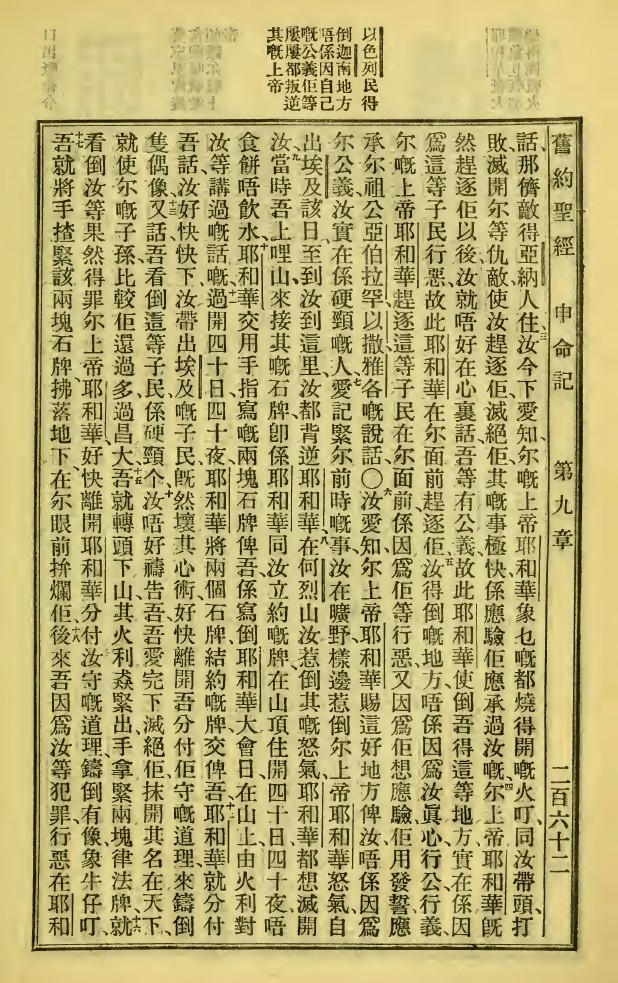 以色列民得
倒迦南地方
唔係因自己
嘅公義佢等
屢屢都叛逆
其嘅上帝
舊約聖經 申命記 第九章 二百六十二
話、那儕敵得亞納人住、三汝今下愛知尔嘅上帝耶和華象乜嘅都燒得開嘅火叮、同汝帶頭、打
敗滅開尔等仇敵、使汝趕逐佢、滅絕佢、其嘅事極快、係應驗佢應承過汝嘅、四尔上帝耶和華旣
然趕逐佢以後、汝就唔好在心裏話、吾等有公義、故此耶和華使倒吾得這等地方、實在係因
爲這等子民行惡、故此耶和華在尔面前趕逐佢、五汝得倒嘅地方、唔係因爲汝眞心行公行義、
尔嘅上帝耶和華趕逐這等子民在尔面前、係因爲佢等行惡、又因爲佢想應驗佢用發誓應
承尔祖公亞伯拉罕、以撒、雅各嘅說話、〇六汝愛知尔上帝耶和華賜這好地方俾汝、唔係因爲
尔公義、汝實在係硬頸嘅人、七愛記緊尔前時嘅事、汝在曠野樣邊惹倒尔上帝耶和華怒氣、自
出埃及該日、至到汝到這里、汝都背逆耶和華、八在何烈山汝惹倒其嘅怒氣、耶和華都想滅開
汝、九當時吾上哩山、來接其嘅石牌、卽係耶和華同汝立約嘅牌、在山頂住開四十日四十夜、唔
食餅、唔飲水、十耶和華交用手指寫嘅兩塊石牌俾吾、係寫倒耶和華大會日在山上由火利對
汝等講過嘅話嘅、十一過開四十日四十夜、耶和華將兩個石牌、結約嘅牌交俾吾、十二耶和華就分付
吾話、汝好快快下、汝帶出埃及嘅子民、旣然壞其心術、好快離開吾分付佢守嘅道理、來鑄倒
隻偶像、十三又話、吾看倒這等子民、係硬頸个、十四汝唔好禱告吾、吾愛完下滅絕佢、抹開其名在天下、
就使尔嘅子孫比較佢還過多過昌大、十五吾就轉頭下山、其火利猋緊出、手拿緊兩塊律法牌、十六就
看倒汝等果然得罪尔上帝耶和華、好快離開耶和華分付汝守嘅道理、鑄倒有像象牛仔叮、
十七吾就將手揸緊該兩塊石牌拂落地下、在尔眼前拚爛佢、十八後來吾因爲汝等犯罪、行惡在耶和